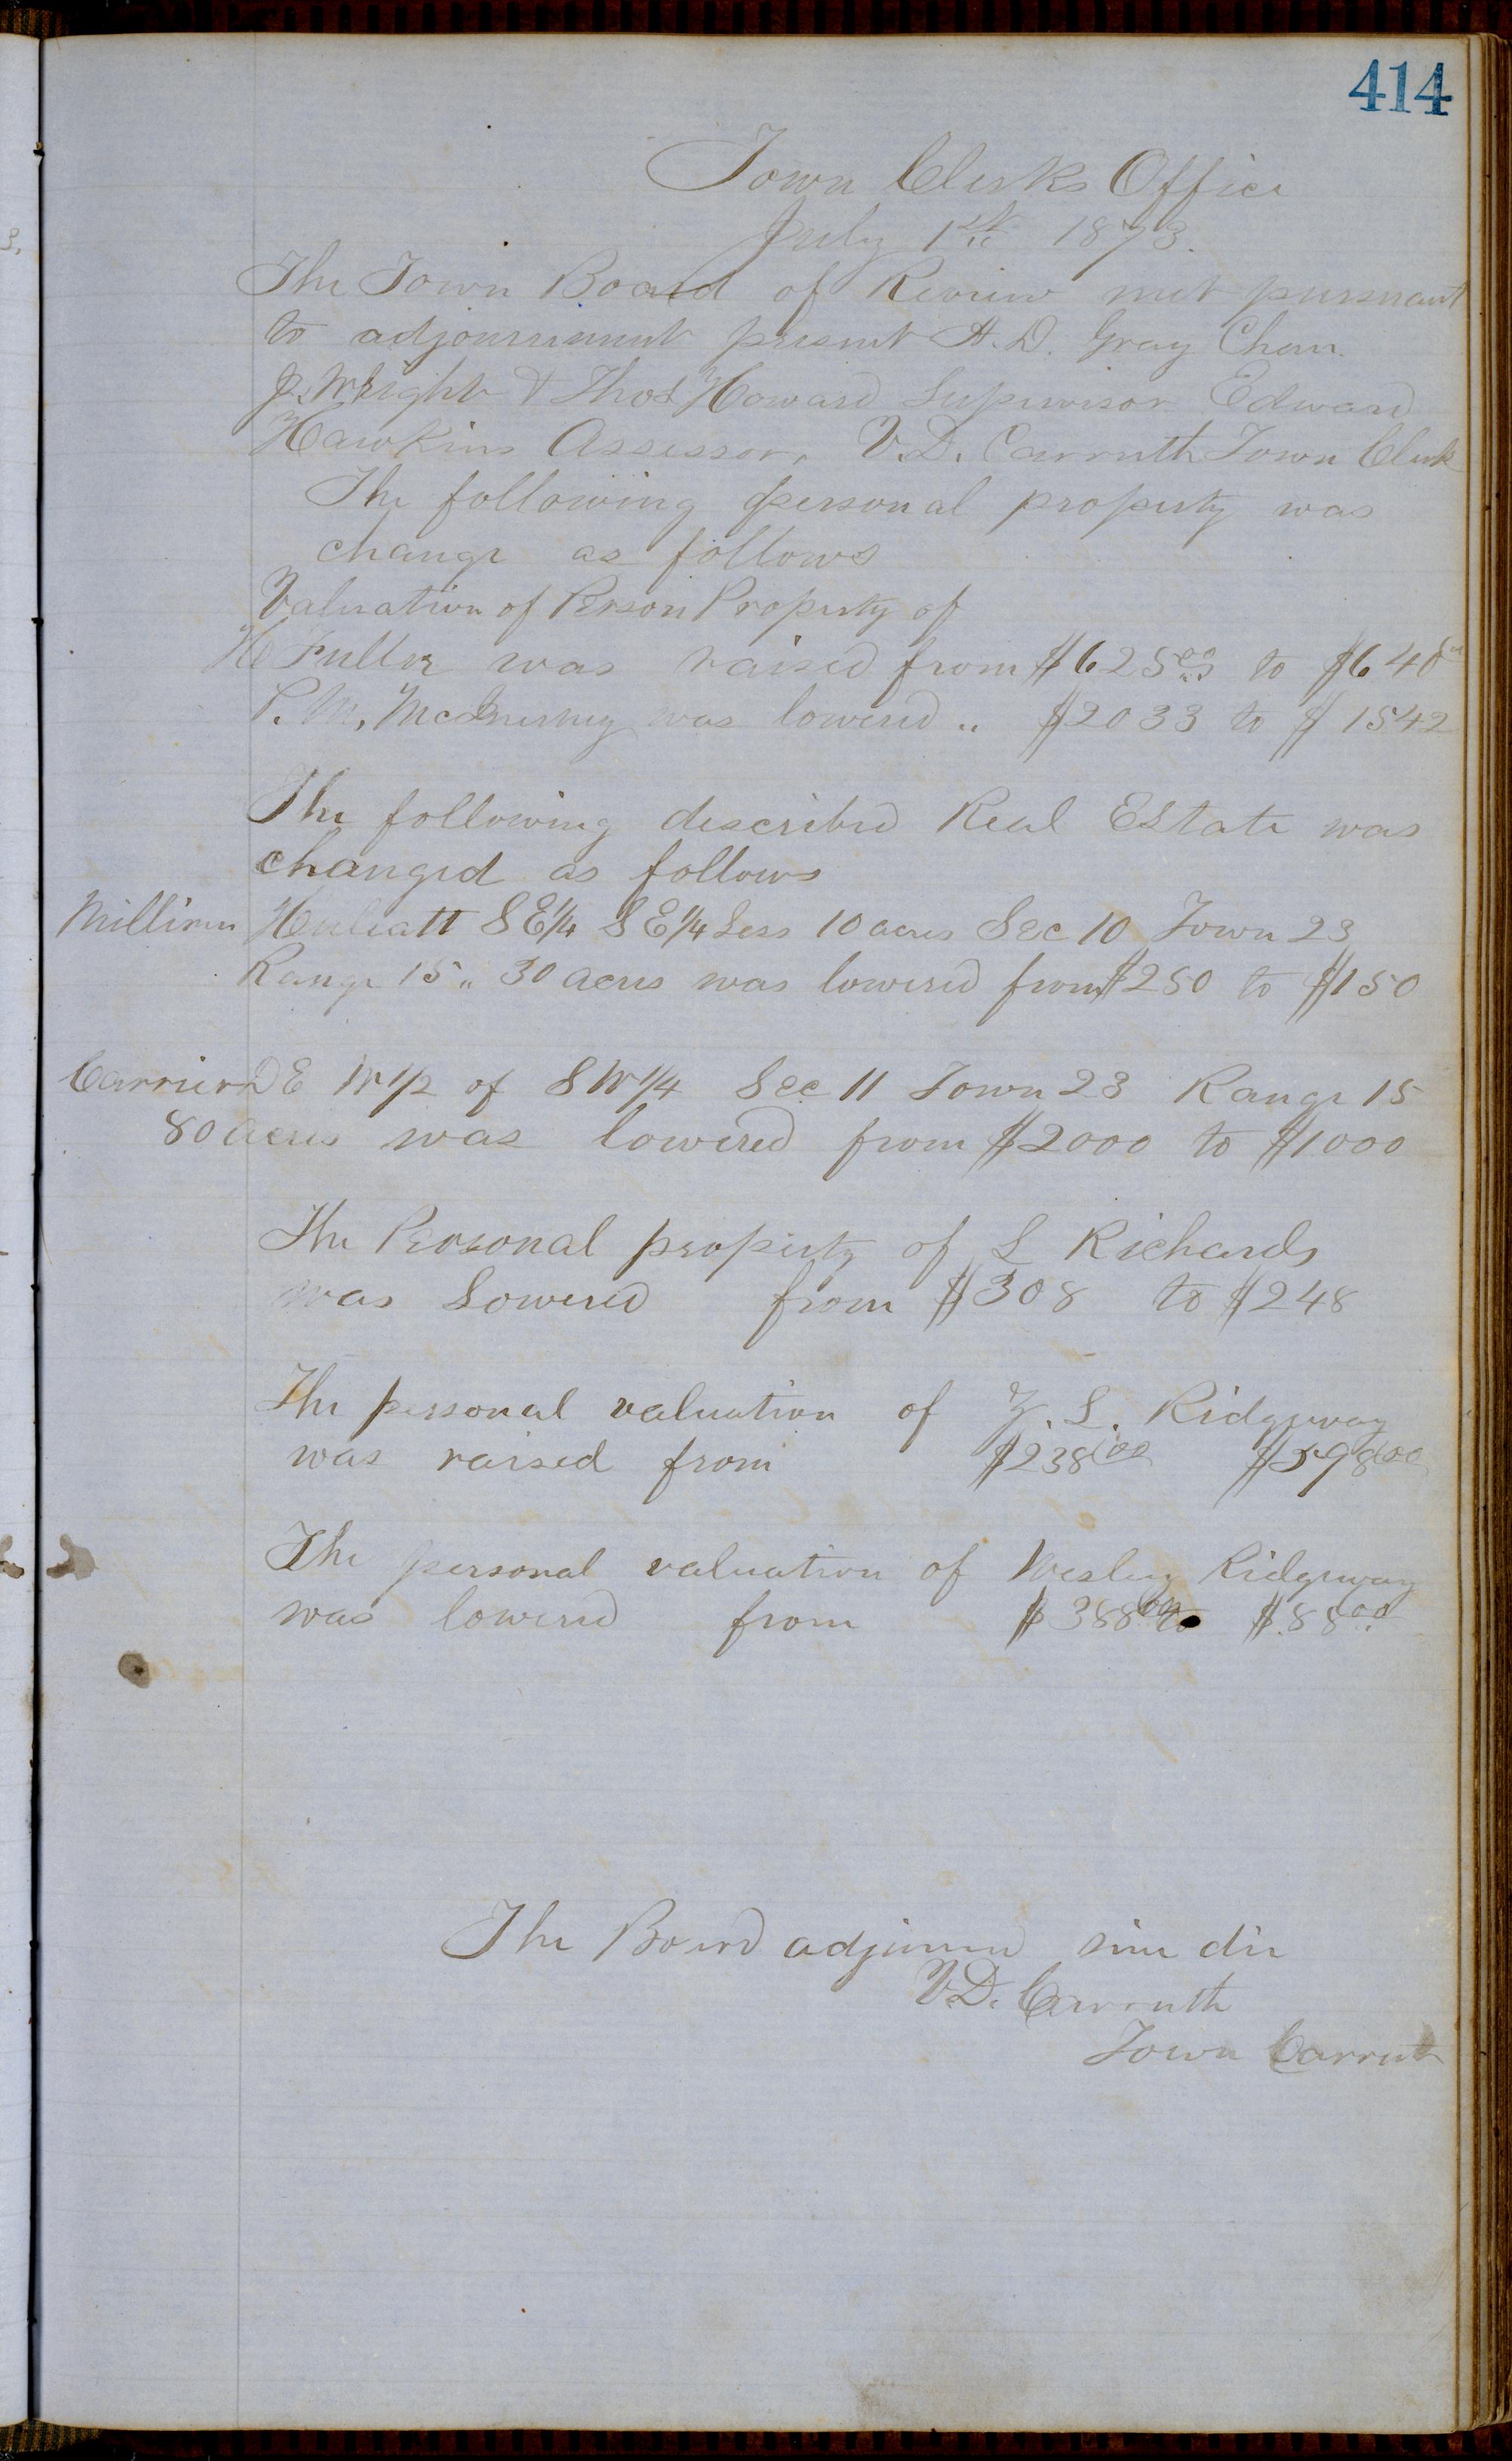 414
Town Clerks Office
July 1st 1873.
The Town Board of Review met pursuant
to adjournment present A. D. Gray Chem.
J. Wright & Thos Howard Supervisor Edward
Hawkins Assessor, V. D. Carruth Town Clerk
The following personal property was
change as follows
Valuation of Person Property of
H Fuller was raised from $625.00 to $640
P. M. was lowered " $2033 to $1542
The following described Real Estate was
changed as follows
Hulcatt S E 1/4 S E 1/4 Less 10 acres Sec 10 Town 23
Range 15 " 30 acres was lowered from $250 to $150
Carrier D E W 1/2 of S W 1/4 Sec 11 Town 23 Range 15
80 acres was lowered from $2000 to $1000
The Personal property of L Richards
was Lowered from $308 to $248
The personal valuation of Z. L. Ridgway
was raised from $238.00 $598.00
The personal valuation of Wesley Ridgway
was lowered from $388.00 to $88.00
The Board adjourned sine die
V. D. Carruth
Town Carruth